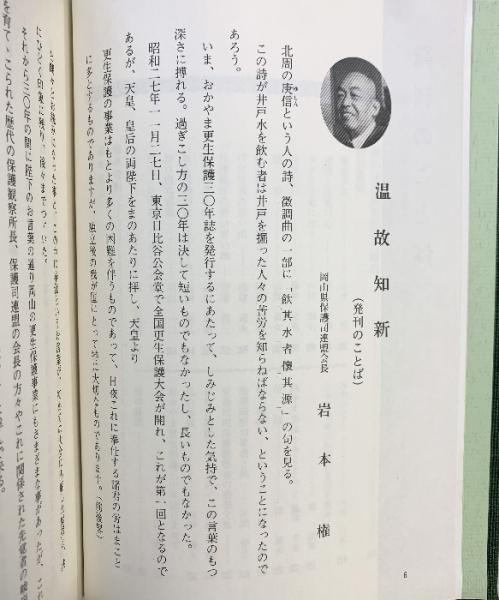 温故知新
(発刊のことば)
岡山県保護司連盟会長 岩本権
北周の庾信という人の詩、徴調曲の一部に「飲其水者懐其源」の句を見る。
ゆしん
この詩が井戸水を飲む者は井戸を掘った人々の苦労を知らねばならない、ということになったので
あろう。
いま、おかやま更生保護三〇年誌を発行するにあたって、しみじみとした気持で、この言葉のもつ
深さに搏れる。過ぎこし方の三〇年は決して短いものでもなかったし、長いものでもなかった。
昭和二七年一一月二七日、東京日比谷公会堂で全国更生保護大会が開れ、これが第一回となるので
あるが、天皇、皇后の両陛下をまのあたりに拝し、天皇より
更生保護の事業はもとより多くの困難を伴うものであって、日夜これに奉仕する諸君の労はまこと
に多とするものでありますが、独立後の我が国にとって特に大切なものであります。(前後略)
にひどく印象に残り、後々まで
それから三〇年の間に陛下のお言葉の通り岡山の更生保護事業にもさまざまな事があったが、これ
を育ててこられた歴代の保護観察所長、保護司連盟の会長の方々やこれに関係された先覚者の
6